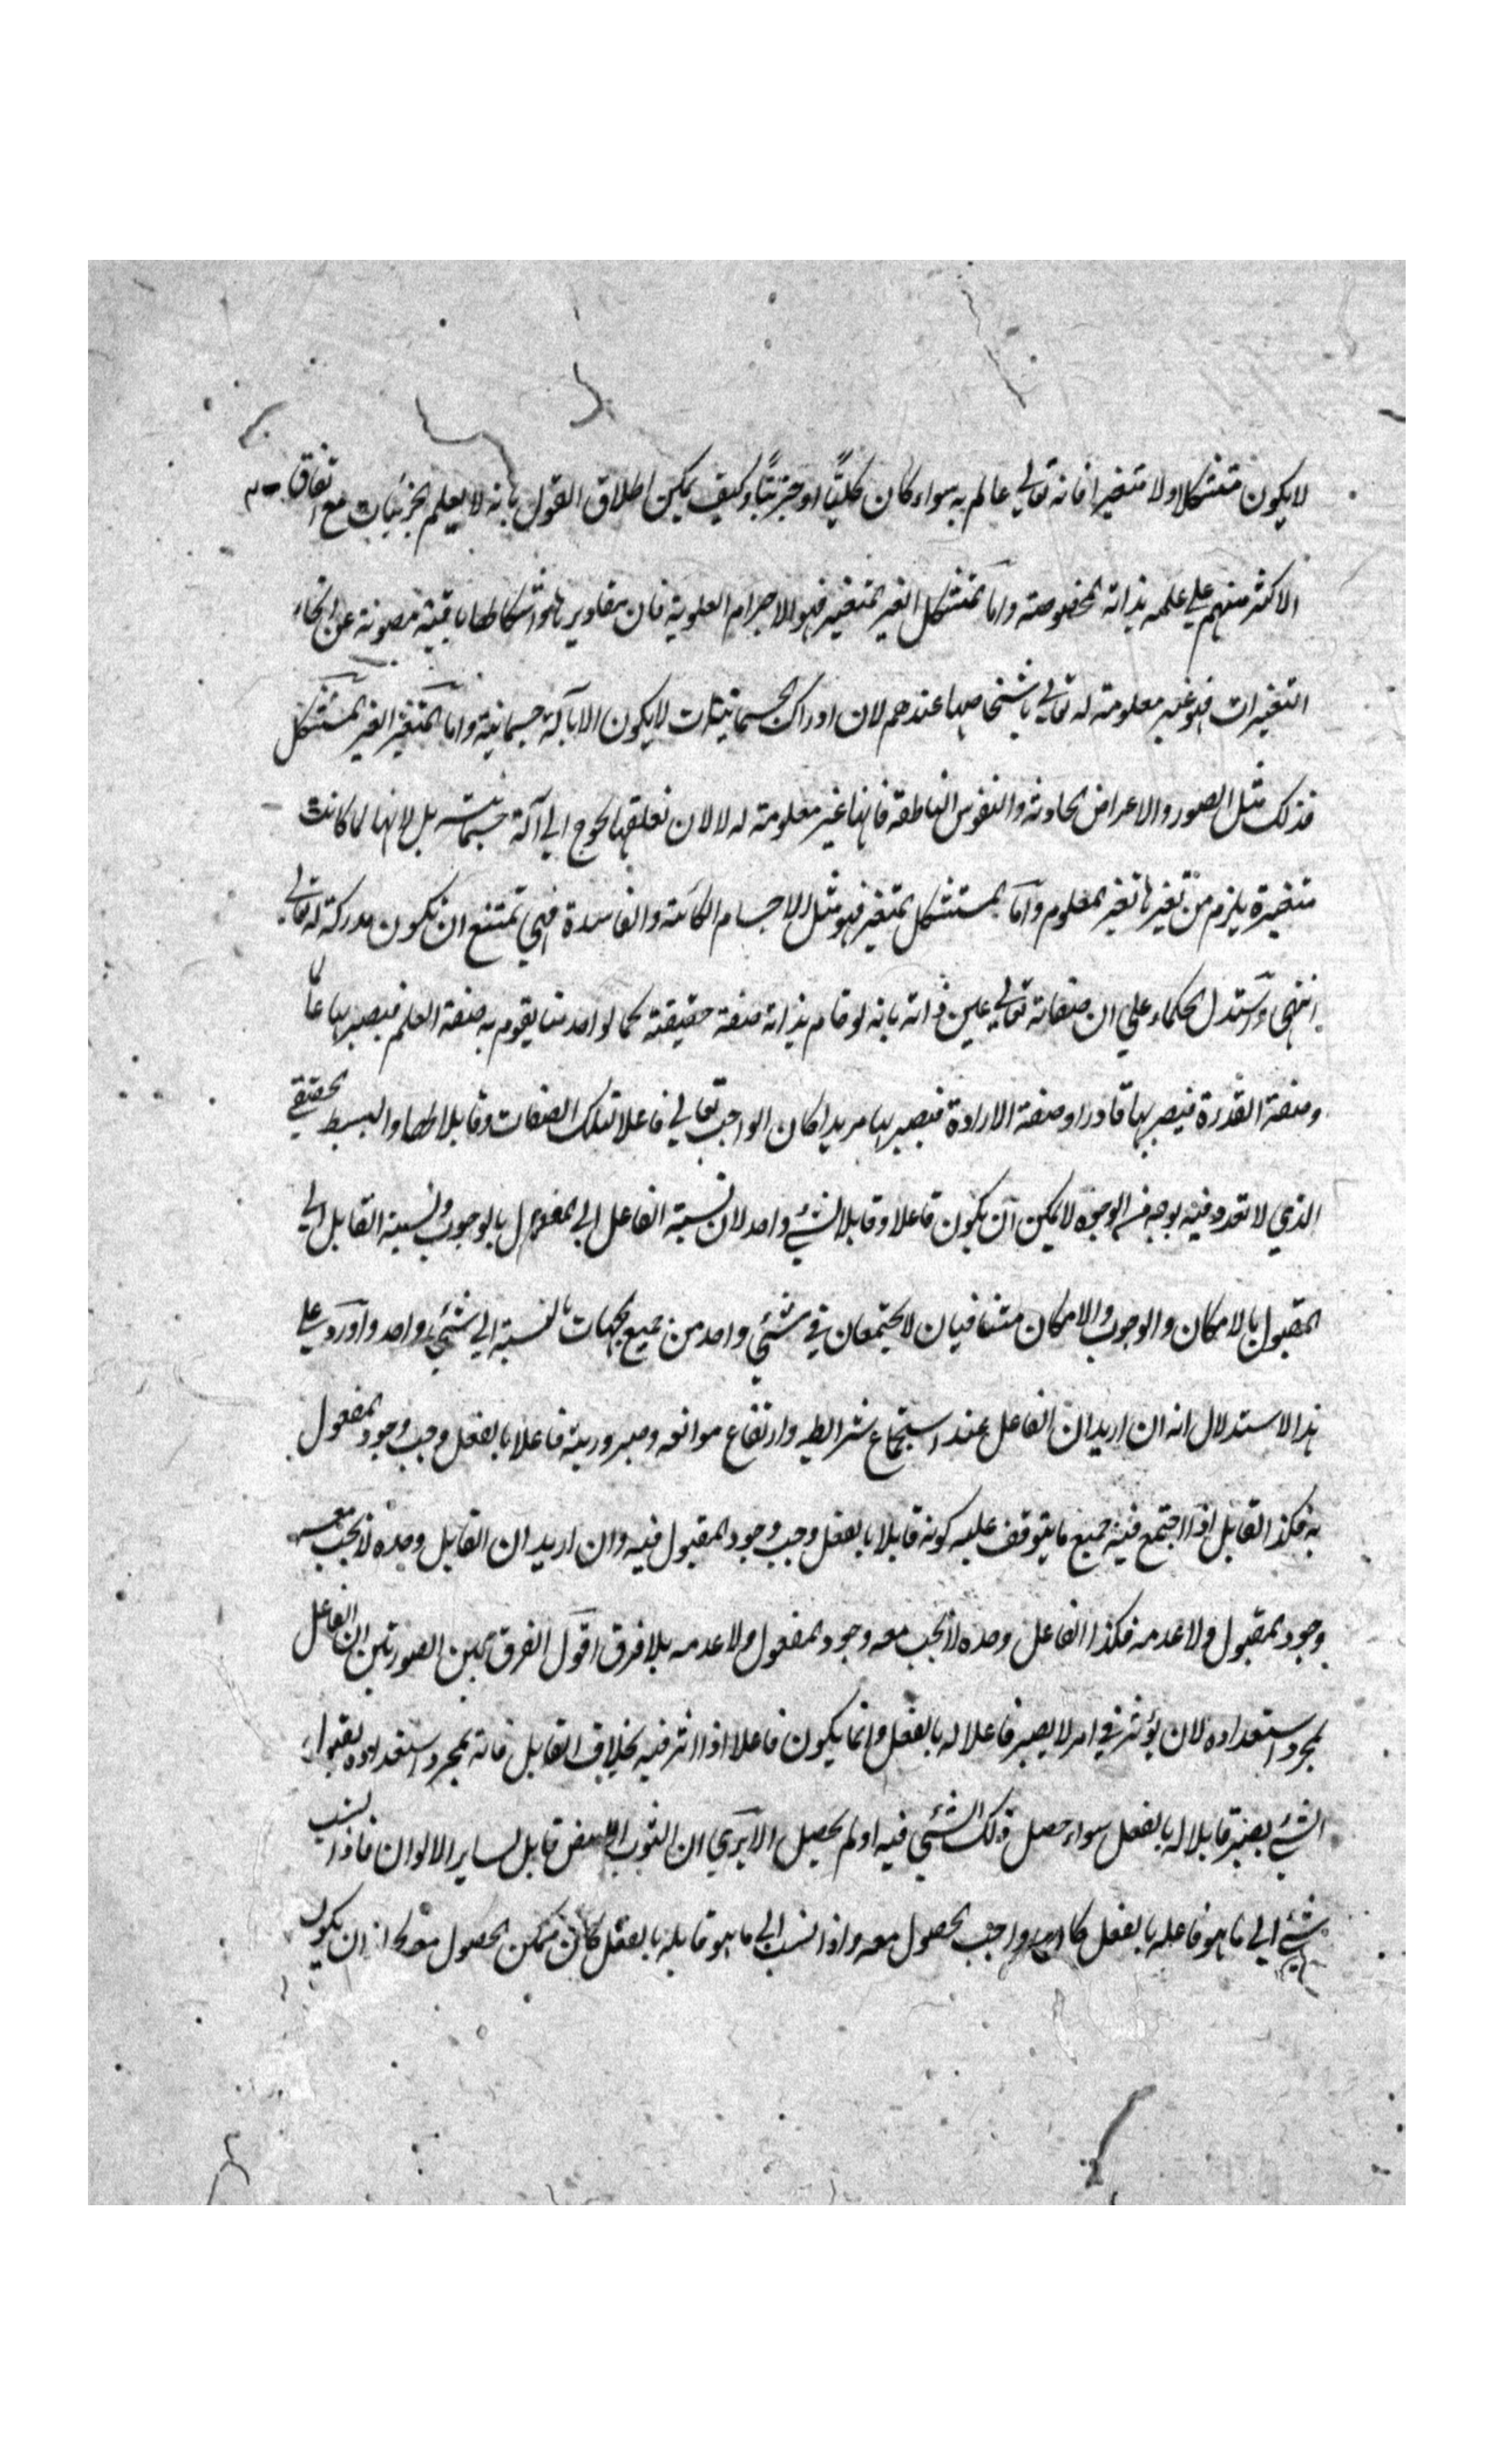 لا يكون متشكلا ولا متغيرا فانه تعالي عالم به سواء كان كليّاً او جزئيّاً وكيف يمكن اطلاق القول بانه لا يعلم الجزئيات مع اتفاق
الاكثر منهم علي علمه بذاته المخصوصة واما المتشكل الغير المتغير فهو الاجرام العلوية فان مقاديرها واشكالها باقية مصونة عن انحاء
التغيرات فهو غير معلومة له تعالي باشخاصها عندهم لان ادراك الجسمانيات لا يكون الا بآلة جسمانية واما المتغير الغير المتشكل
فذلك مثل الصور والاعراض الحادثة والنفوس الناطقة فانها غير معلومة له لا لان تعلقها يحوج الي آلة جسمانية بل لانها لما كانت
متغيرة يلزم من تغيرها تغير المعلوم واما المتشكل المتغير فهو مثل الاجسام الكائنة والفاسدة فهي يمتنع ان يكون مدركة له تعالي
انتهي واستدل الحكماء علي ان صفاته تعالي عين ذاته بانه لو قام بذاته صفة حقيقة كما لواحد منا يقوم به صفة العلم فيصير بها عالما
وصفة القدرة فيصير بها قادرا وصفة الارادة فيصير بها مريدا كان الواجب تعالي فاعلا لتلك الصفات وقابلا لها والبسيط الحقيقي
الذي لا تعدد فيه بوجه من الوجوه لا يمكن ان يكون فاعلا وقابلا لشئ واحد لان نسبة الفاعل الي المفعول بالوجوب ونسبة القابل الي
المقبول بالامكان والوجوب والامكان متنافيان لا يجتمعان في شئي واحد من جميع الجهات بالنسبة الي شئي واحد واورد علي
هذا الاستدلال انه ان اريد ان الفاعل عند استجماع شرائطه وارتفاع موانعه وصيرورته فاعلا بالفعل وجب وجود المفعول
به فكذا القابل اذا اجتمع فيه جميع ما يتوقف عليه كونه قابلا بالفعل وجب وجود المقبول فيه وان اريد ان القابل وحده لا يجب معه
وجود المقبول ولا عدمه فكذا الفاعل وحده لا يجب معه وجود المفعول ولا عدمه بلا فرق اقول الفرق بين الصورتين ان الفاعل
بمجرد استعداده لان يؤثر في امر لا يصير فاعلا له بالفعل وانما يكون فاعلا اذا اثر فيه بخلاف القابل فانه بمجرد استعداده لقبول
الشئ يصير قابلا له بالفعل سواء حصل ذلك الشئي فيه او لم يحصل الا يري ان الثوب الابيض قابل لساير الالوان فاذا نسب
شئ الي ما هو فاعله بالفعل كان واجب الحصول معه واذا نسب الي ما هو قابله بالفعل كان ممكن الحصول معه ان يكون